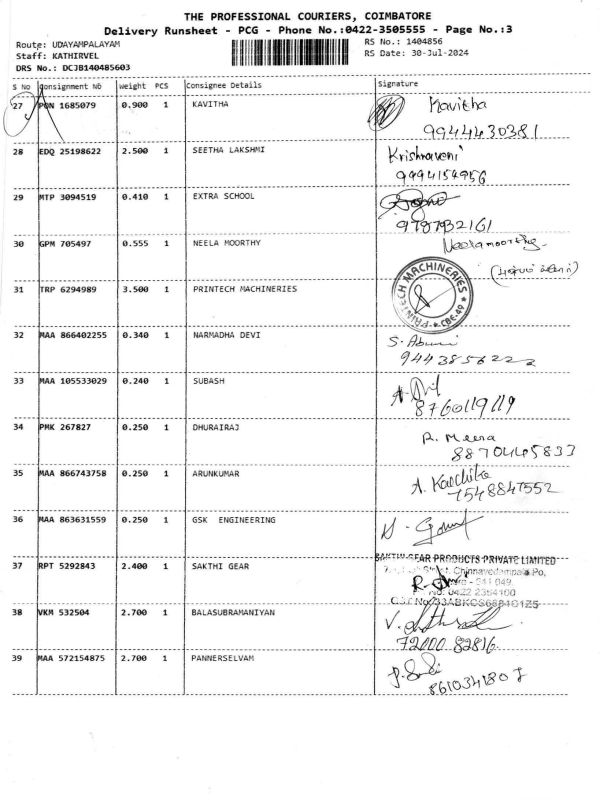 THE PROFESSIONAL COURIERS, COIMBATORE
Delivery Runsheet - PCG - Phone No.:0422-3505555 - Page No.:3
Route: UDAYAMPALAYAM
Staff: KATHIRVEL
DRS No.: DCJB140485603
RS No.: 1404856
RS Date: 30-Jul-2024
S No Consignment No Weight PCS Consignee Details Signature
27 PON 1685079 0.900 1 KAVITHA Kavitha
9944430381
28 EDQ 25198622 2.500 1 SEETHA LAKSHMI Krishnaveni
9994154956
29 MTP 3094519 0.410 1 EXTRA SCHOOL
9787932161
30 GPM 705497 0.555 1 NEELA MOORTHY Neelamoorthy
31 TRP 6294989 3.500 1 PRINTECH MACHINERIES
PRINTECH MACHINERIES
CBE-49
32 MAA 866402255 0.340 1 NARMADHA DEVI S. Abuni
9443856222
33 MAA 105533029 0.240 1 SUBASH
8760119119
34 PMK 267827 0.250 1 DHURAIRAJ R. Meena
8870445833
35 MAA 866743758 0.250 1 ARUNKUMAR A.
7548847552
36 MAA 863631559 0.250 1 GSK ENGINEERING
37 RPT 5292843 2.400 1 SAKTHI GEAR SAKTHI GEAR PRODUCTS PRIVATE LIMITED
Chinnavedampatti Po,
641 049.
0422 2364100
38 VKM 532504 2.700 1 BALASUBRAMANIYAN
72000 82816
39 MAA 572154875 2.700 1 PANNERSELVAM
8610341807